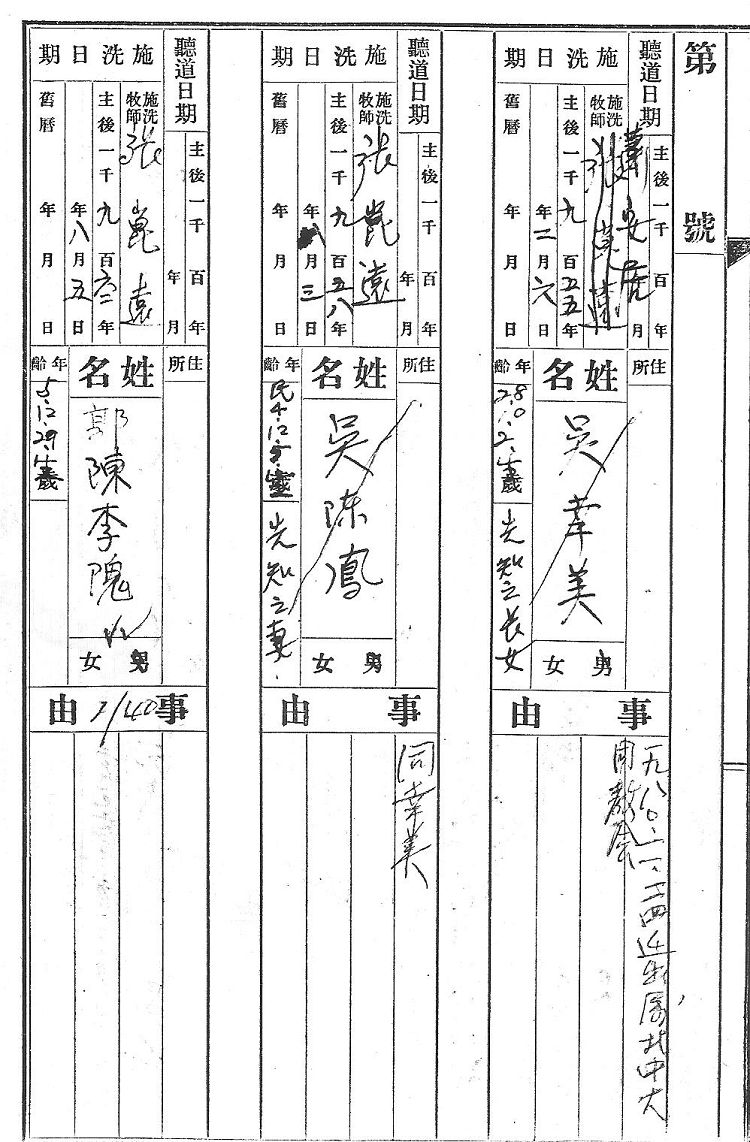 第 號
聽道日期
主後一千 百 年 月
施洗日期
施洗牧師
張崑遠
蕭安居
主後一千九百五五年
二月六日
舊曆 年 月 日
住所
姓名
吳幸美
男 女
年齡
28.10.2.生 歲
先知之長女
事由
一九八〇、一一、二四遷出屬北中大
同教会
聽道日期
主後一千 百 年 月
施洗日期
施洗牧師
張崑遠
主後一千九百五八年
八月三日
舊曆 年 月 日
住所
姓名
吳陳鳳
男 女
年齡
民4.12.8.生 歲
先知之妻.
事由
同幸美
聽道日期
主後一千 百 年 年 月
施洗日期
施洗牧師
張崑遠
主後一千九百六二年
年八月五日
舊曆 年 月 日
住所
姓名
郭陳李隗
男 女
年齡
5.12.29.生 歲
事由
1/40